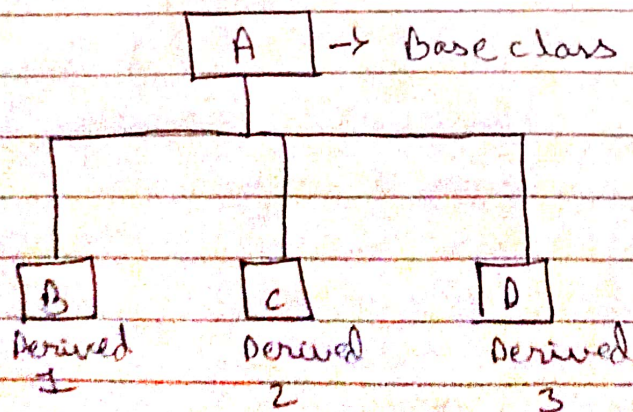 A → Base class
B C D
Derived Derived Derived
1 2 3